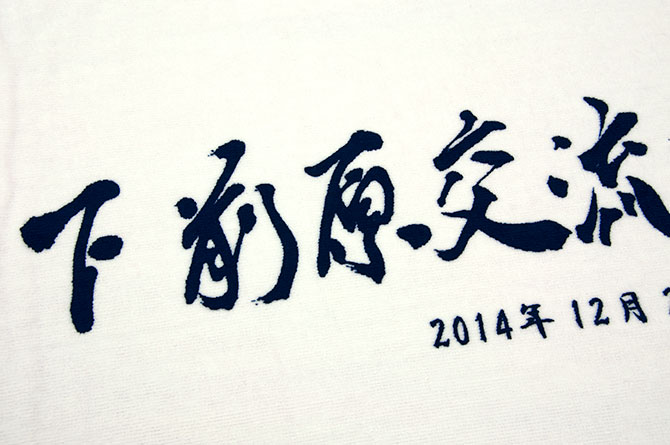 下前原交流
2014年12月